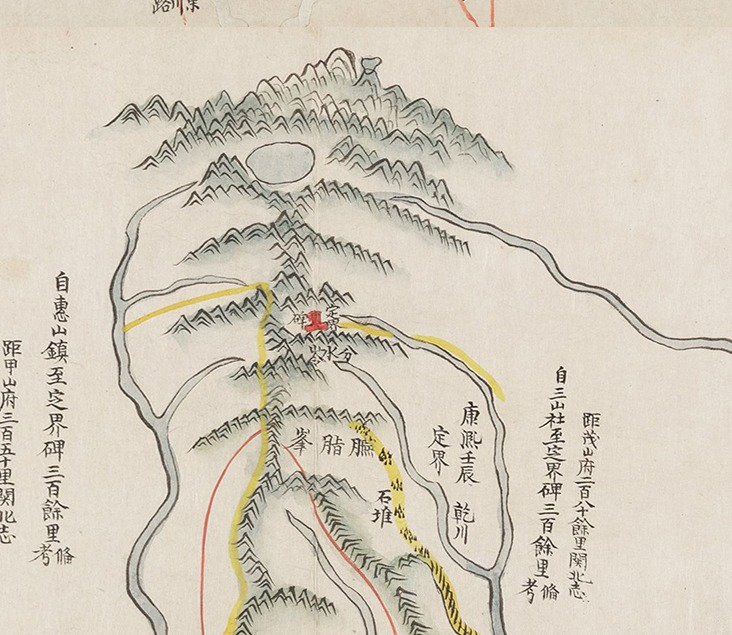 定界
碑
分水岺
臙脂峯
康熙壬辰
定界
乾川
石堆
自三山社至定界碑三百餘里
備考
距茂山府二百八十餘里関北志
自惠山鎮至定界碑三百餘里
備考
距甲山府三百五十里関北志